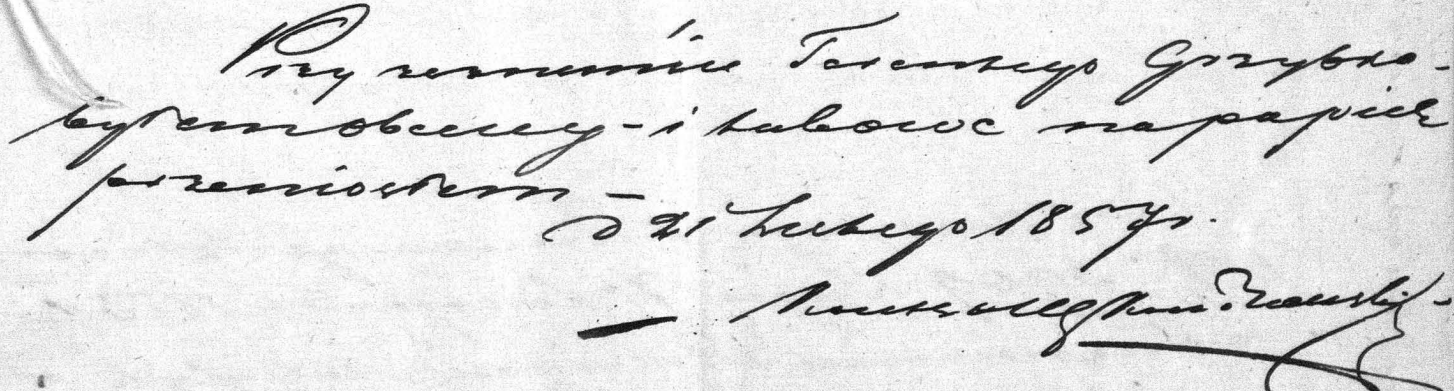 Przy zeznaniu Jacentego Grzybko-
byłem obecny - i takowe na papier
przeniosłem -
d 21 Lutego 1857 r.